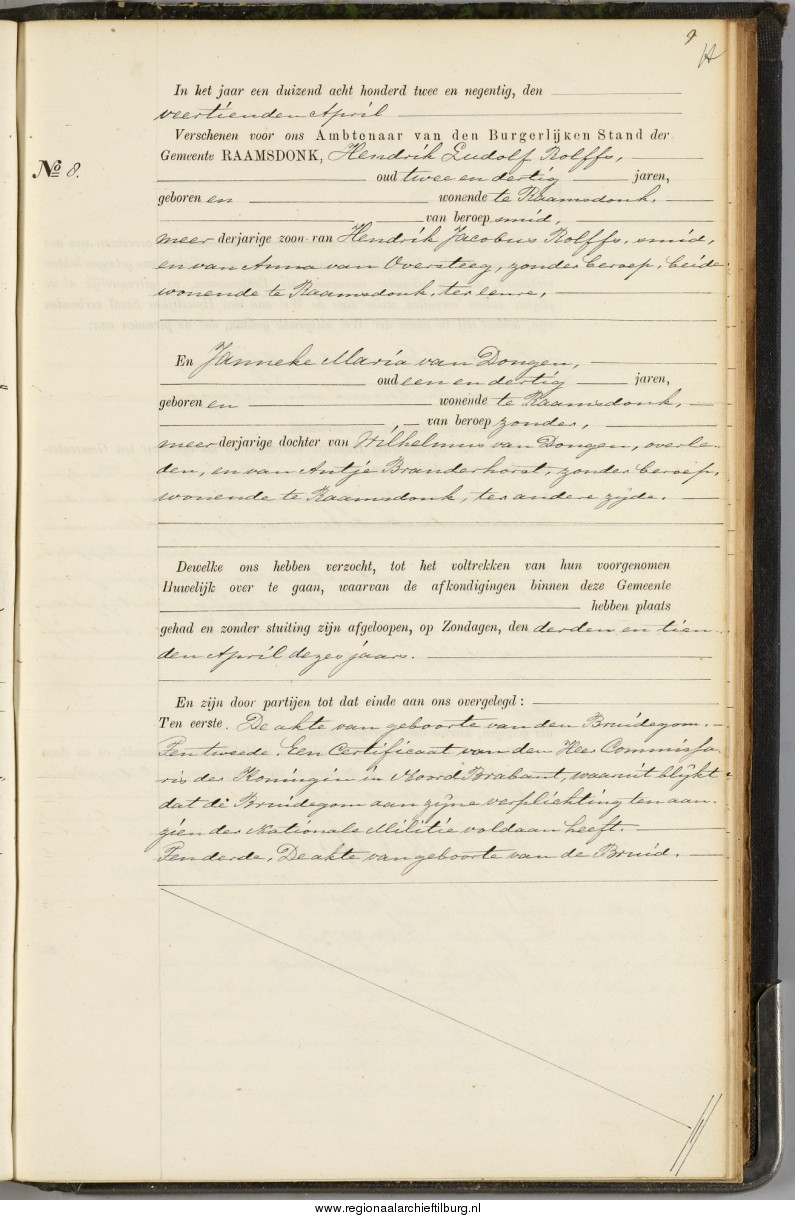 9
In het jaar een duizend acht honderd twee en negentig, den
veertienden April
Verschenen voor ons Ambtenaar van den Burgerlijken Stand der
Gemeente RAAMSDONK, Hendrik Ludolf Rolffs,
No 8.
oud twee en dertig jaren,
geboren en wonende te Raamsdonk,
van beroep smid,
meer derjarige zoon van Hendrik Jacobus Rolffs, smid,
en van Anna van Oversteeg, zonder beroep, beide
wonende te Raamsdonk, ter eenre,
En Janneke Maria van Dongen,
oud een en dertig jaren,
geboren en wonende te Raamsdonk,
van beroep zonder,
meer derjarige dochter van Wilhelmus van Dongen, overle-
den, en van Antje Branderhorst, zonder beroep,
wonende te Raamsdonk, ter andere zijde.
Dewelke ons hebben verzocht, tot het voltrekken van hun voorgenomen
Huwelijk over te gaan, waarvan de afkondigingen binnen deze Gemeente
hebben plaats
gehad en zonder stuiting zijn afgeloopen, op Zondagen, den derden en tien-
den April dezes jaars.
En zijn door partijen tot dat einde aan ons overgelegd:
Ten eerste. De akte van geboorte van den Bruidegom.
Ten tweede. Een Certificaat van den Heer Commissa-
ris der Koningin in Noord Brabant, waaruit blijkt
dat de Bruidegom aan zijne verplichting ten aan-
zien der Nationale Militie voldaan heeft.
Ten derde. De akte van geboorte van de Bruid.
www.regionaalarchieftilburg.nl